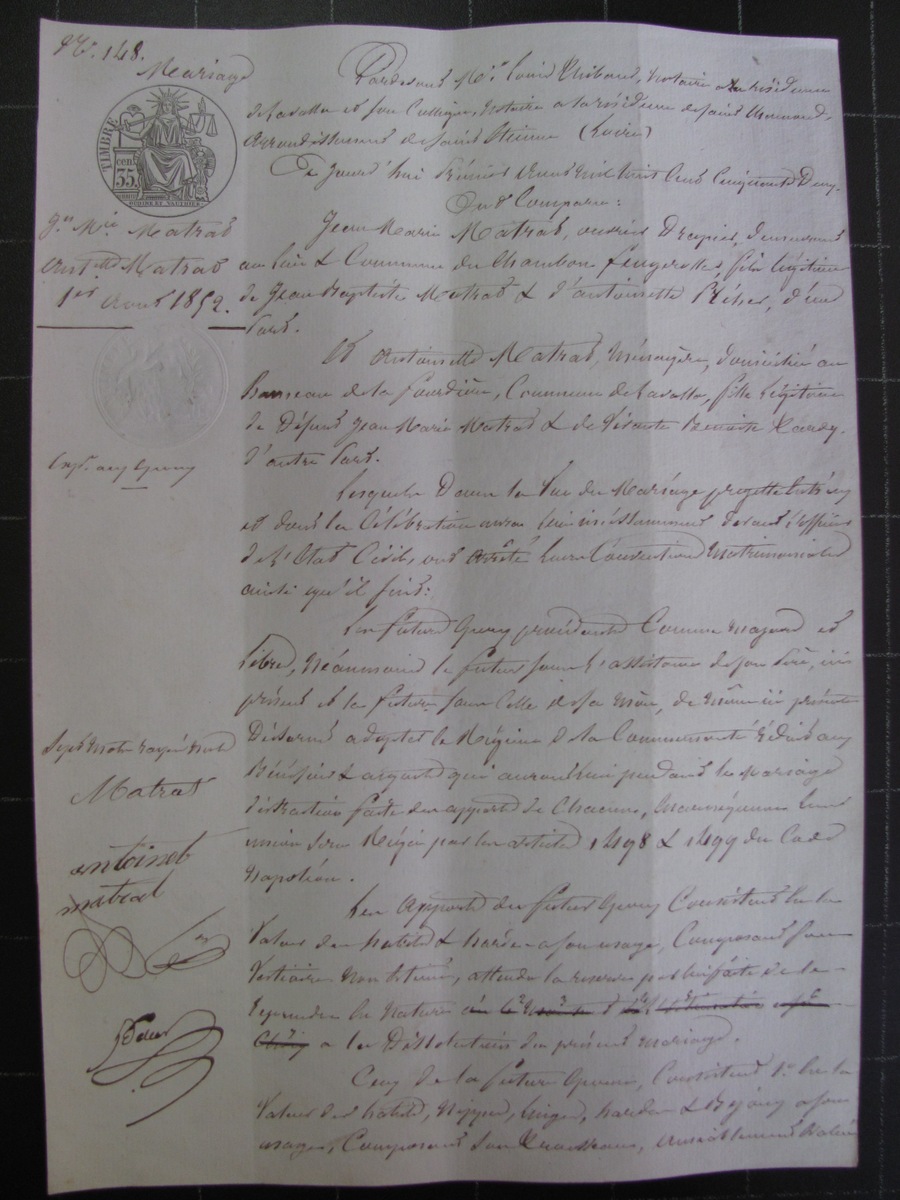 N°. 148.
Mariage
TIMBRE
cen.
35
Jn Mie Matrat
Antette Matrat
1er Aout 1852.
Expon aux Epoux
Sept mots rayés nuls
Matrat
antoinet
matrat
Pardevant Me Louis Thibaud, Notaire a la résidence
de Lavalla et son Collègue, Notaire a la résidence de Saint Chamond,
Arrondissement de Saint Etienne (Loire)
Ce Jourd'hui Premier Aout mil huit Cent Cinquante Deux.
Ont Comparu:
Jean Marie Matrat, ouvrier, demeurant
au lieu & Commune du Chambon Feugerolles, fils légitime
de Jean Baptiste Matrat & d'antoinette, d'une
Part.
Et Antoinette Matrat, Ménagère, domiciliée au
hameau de la, Commune de Lavalla, fille légitime
de Défunt Jean Marie Matrat & de vivante Benoite
d'autre Part.
Lesquels Dans la Vue du Mariage projetté Entr'eux
et dont la Célébration aura lieu incessamment devant l'officier
de l'Etat Civil, ont arrêté leurs Conventions Matrimoniales
ainsi qu'il suit:
Les futurs Epoux procédant Comme Majeurs et
libres, Néanmoins le futur sous l'assistance de son Père, ici
présent et la future sous Celle de sa Mère, de même ici présente
Déclarent adopter le Régime de la Communauté réduite aux
Bénéfices & acquets qui auront lieu pendant le Mariage
distraction faite des apports de Chacun, Conséquemment leur
union sera Régie par les articles 1498 & 1499 du Code
Napoléon.
Les Apports du futur Epoux Consistent En la
Valeur des habits & hardes a son usage, Composant son
Vestiaire Non Estimé, attendu la reserve par lui faite de le
Reprendre En Nature
a la Dissolution du présent mariage.
Ceux de la future Epouse, Consistent 1° En la
Valeur des habits, Nippes, linges, hardes & Bijoux a son
usage, Composant son Trousseau, amiablement Evalué